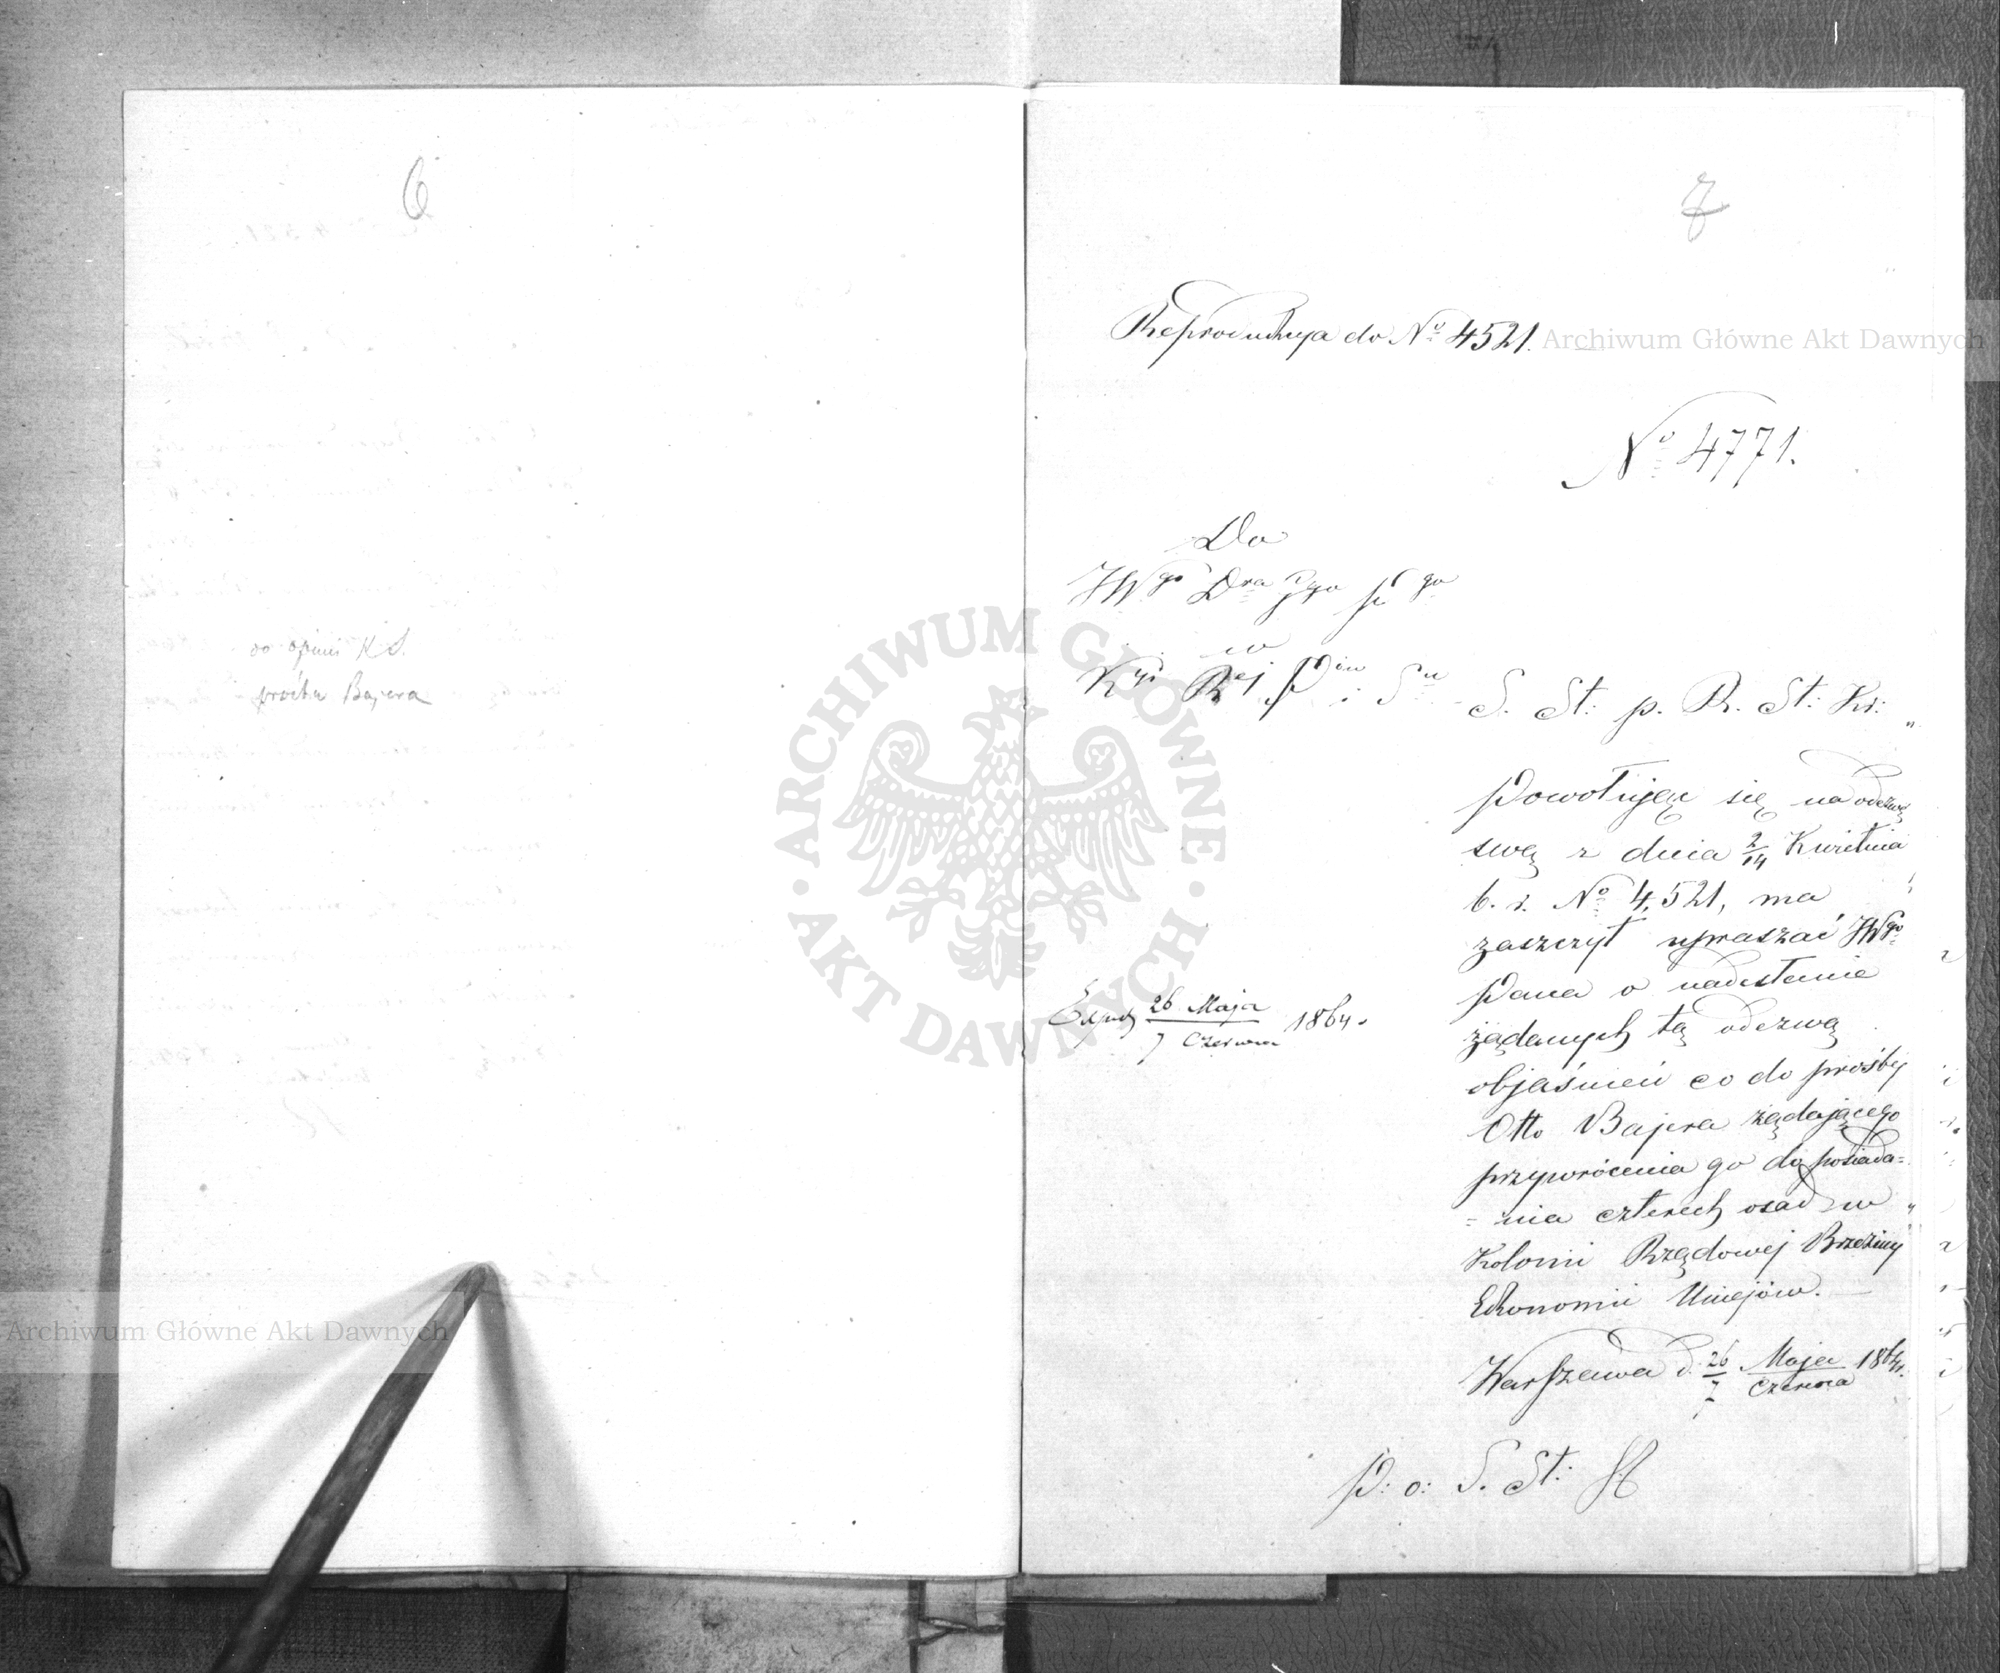 6
do opinii K S.
prośba Bajera
7
Reprodukcja do No 4521.
No 4771.
Do
JWgo Dra Jgo
w
Kji Rej i S
S. St: p. R. St: Kr:
Powołując się na odezwę
swą z dnia 2/14 Kwietnia
b. r. No 4,521, ma
zaszczyt upraszać JWgo
Pana o nadesłanie
żądanych tą odezwą
objaśnień co do prośby
Otto Bajera żądającego
przywrócenia go do posiada=
=nia czterech osad w
Kolonii Rządowej Brzeziny
Ekonomii Uniejów.
Warszawa d. 26/7 Maja/Czerwca 1864 r.
Exped 26 Maja/7 Czerwca 1864.
P: o: S. St:
Archiwum Główne Akt Dawnych
Archiwum Główne Akt Dawnych
ARCHIWUM GŁÓWNE
AKT DAWNYCH